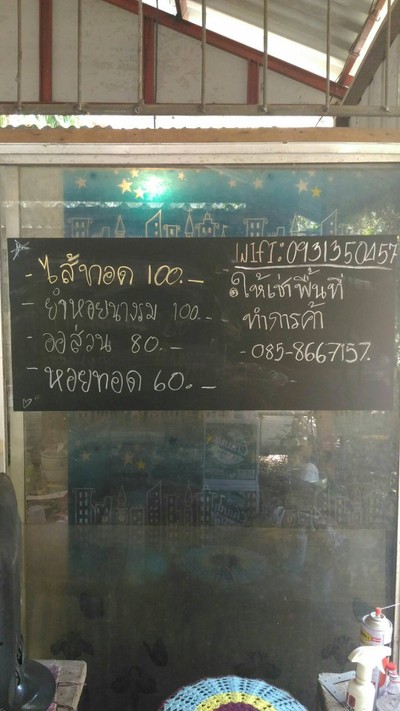 - ไส้ทอด 100.-
- ยำหอยนางรม 100.-
- ออส่วน 80.-
- หอยทอด 60.-
WIFI:0931350457
ให้เช่าพื้นที่
ทำการค้า
- 085-8667157.